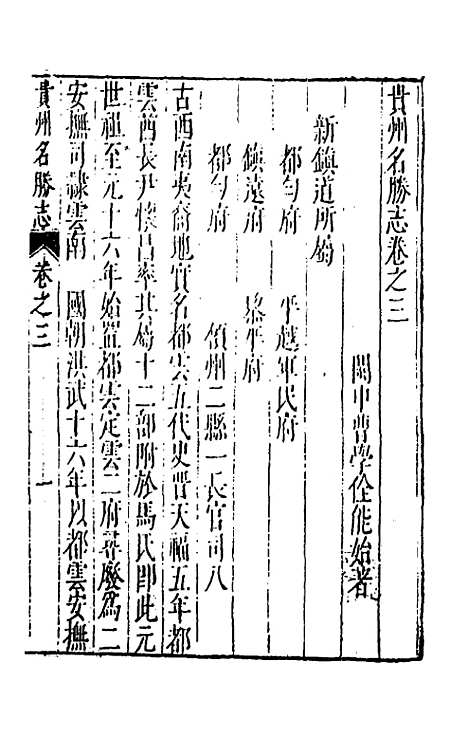 貴州名勝志卷之三
閩中曹學佺能始著
新鎮道所屬
都勻府　平越軍民府
鎮遠府　黎平府
都勻府　領州二縣一長官司八
古西南夷裔地實名都雲五代史晋天福五年都
雲酋長尹懷昌率其屬十二部附於馬氏即此元
世祖至元十六年始置都雲定雲二府尋廢為二
安撫司隸雲南　國朝洪武十六年以都雲安撫
貴州名勝志　卷之三　一